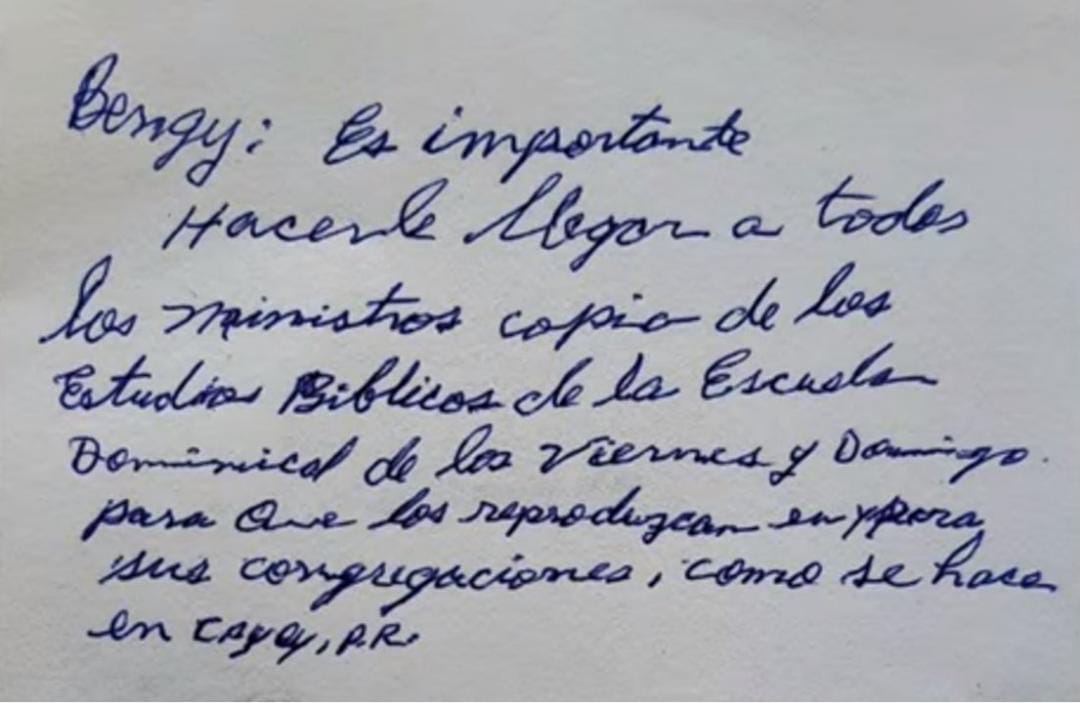 Bengy: Es importante
Hacerle llegar a todos
los ministros copia de los
Estudios Biblicos de la Escuela
Dominical de los Viernes y Domingo.
para Que los reproduzcan en y para
sus congregaciones, como se hace
en Cayey, P.R.